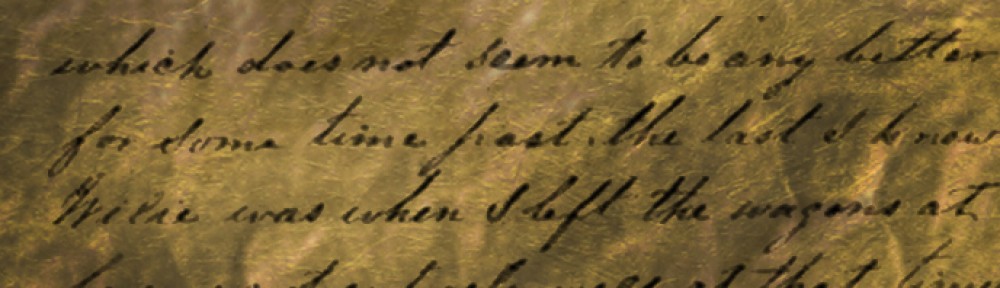 which does not seem to be any better
for some time past. the last I know
Willie was when I left the wagons at
at that time